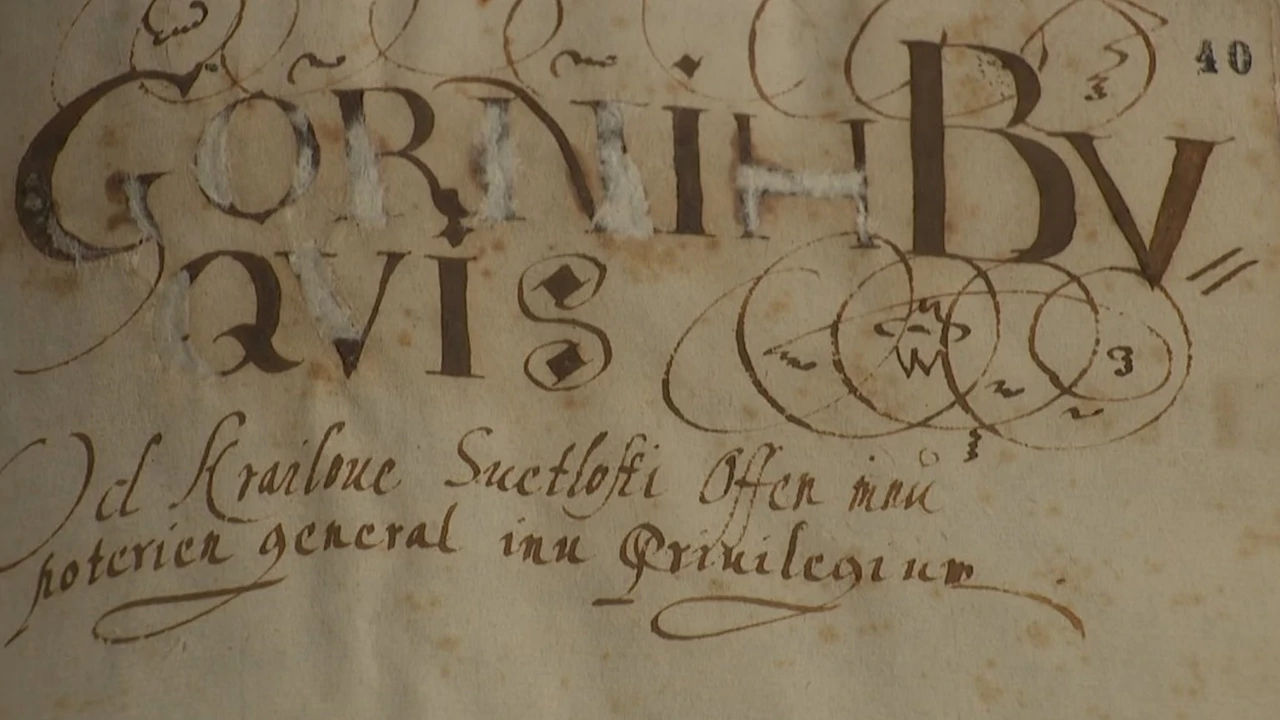 40
GÕRÑIH BV=
QVIS
Od Krailoue Suetlosti Offen innu
poterien general inu Priuilegium